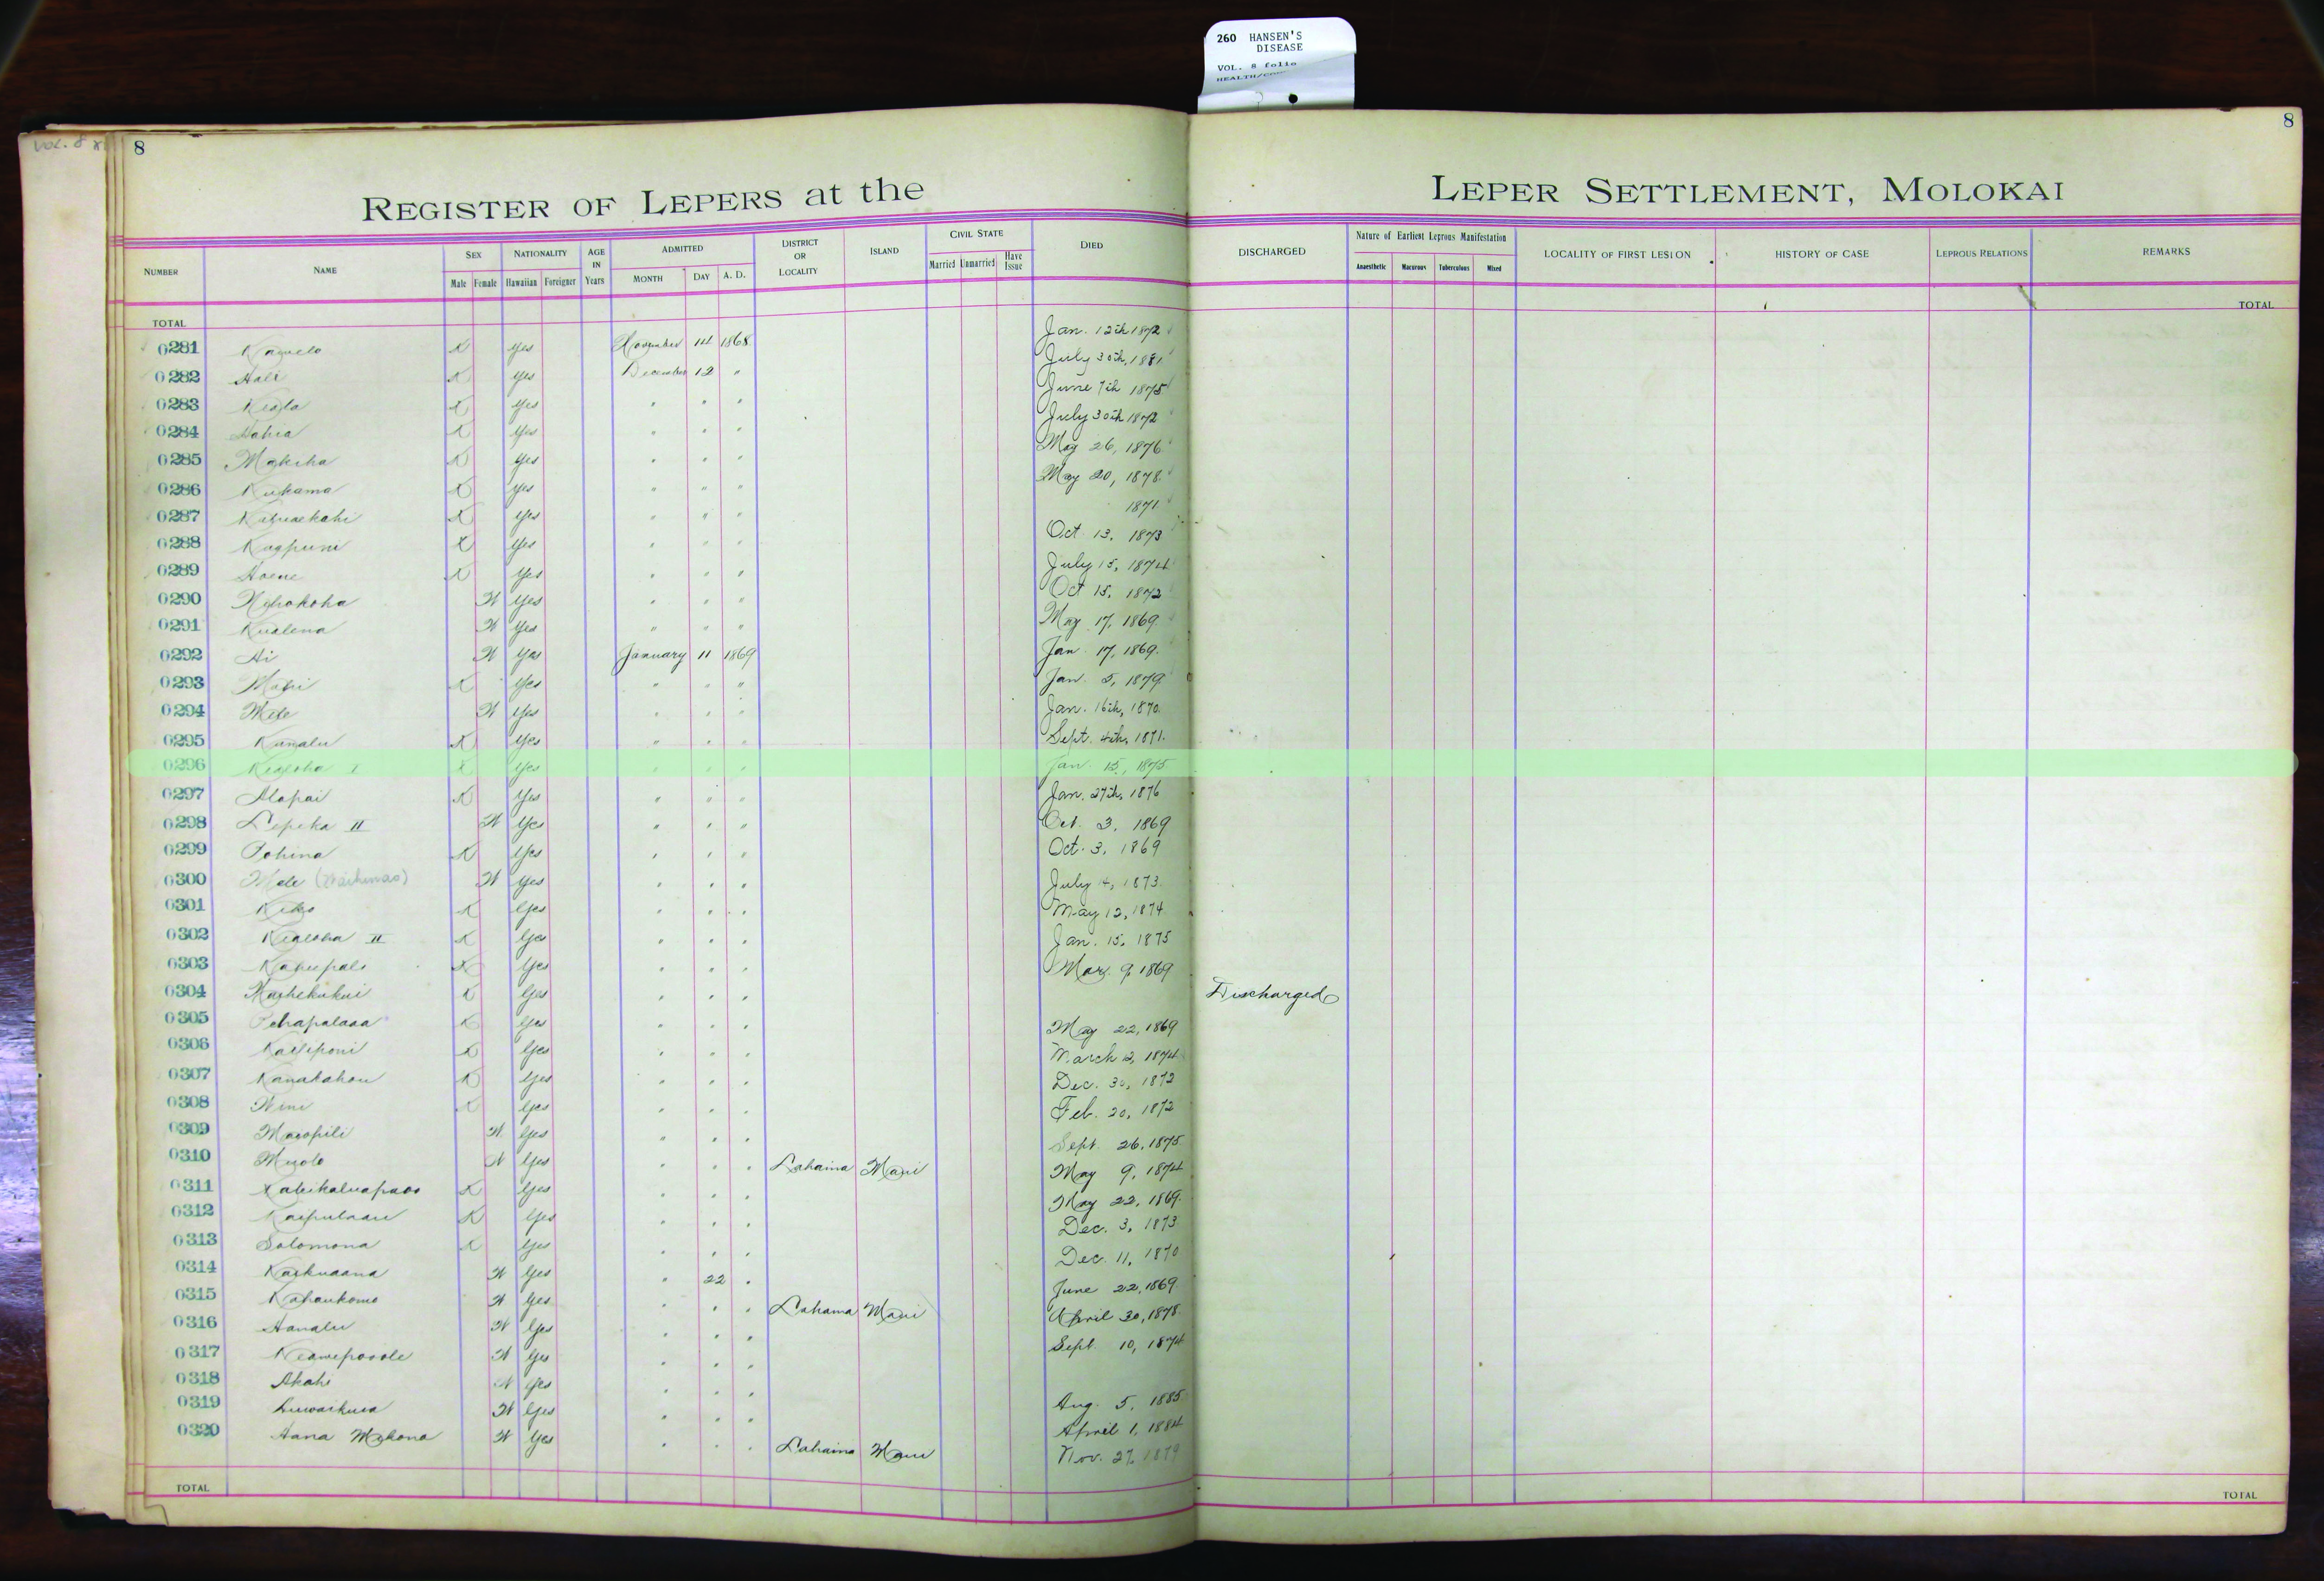 260 HANSEN'S
DISEASE
VOL. 8 folio
VOL. 8
8
8
REGISTER OF LEPERS at the LEPER SETTLEMENT, MOLOKAI
NUMBER NAME SEX Male Female NATIONALITY Hawaiian Foreigner AGE IN Years ADMITTED MONTH DAY A. D. DISTRICT OR LOCALITY ISLAND CIVIL STATE Married Unmarried Have Issue DIED DISCHARGED Nature of Earliest Leprous Manifestation Anaesthetic Macurous Tuberculous Mixed LOCALITY OF FIRST LESION HISTORY OF CASE LEPROUS RELATIONS REMARKS
TOTAL TOTAL
0281 X Yes November 14 1868 Jan. 12th 1872
0282 Hali X Yes December 12 " July 30th, 1881
0283 X Yes " " " June 7th 1875
0284 X Yes " " " July 30th 1872
0285 Makeha X Yes " " " May 26, 1876
0286 Kukama X Yes " " " May 20, 1878
0287 X Yes " " " 1871
0288 X Yes " " " Oct 13, 1873
0289 Hoene X Yes " " " July 15, 1874
0290 W Yes " " " Oct 15, 1872
0291 Kualena W Yes " " " May 17, 1869
0292 Ai W Yes January 11 1869 Jan 17, 1869.
0293 X Yes " " " Jan 5, 1879
0294 Mele W Yes " " " Jan. 16th, 1870.
0295 Kanalu X Yes " " " Sept. 4th, 1871.
0296 Kealoha I X Yes " " " Jan. 15, 1875
0297 Alapai X Yes " " " Jan. 27th, 1876
0298 Lepeka II W Yes " " " Oct. 3, 1869
0299 Pohina X Yes " " " Oct. 3, 1869
0300 Mele W Yes " " " July 4, 1873.
0301 X Yes " " " May 12, 1874
0302 Kealoha II X Yes " " " Jan. 15, 1875
0303 X Yes " " " Mar. 9, 1869
0304 X Yes " " " Discharged
0305 Pehapalaoa X Yes " " " May 22, 1869
0306 Kailiponi X Yes " " " March 12, 1874
0307 Kanakahou X Yes " " " Dec. 30, 1872
0308 X Yes " " " Feb. 20, 1872
0309 W Yes " " " Sept. 26, 1875
0310 W Yes " " " Lahaina Maui May 9, 1874
0311 X Yes " " " May 22, 1869.
0312 X Yes " " " Dec. 3, 1873
0313 Solomona X Yes " " " Dec. 11, 1870
0314 Kaikuaana W Yes " 22 " June 22, 1869.
0315 W Yes " " " Lahaina Maui April 30, 1878.
0316 Hanalu W Yes " " " Sept. 10, 1874
0317 Keawepoole W Yes " " "
0318 Akahi W Yes " " " Aug. 5, 1885
0319 W Yes " " " April 1, 1884
0320 Hana W Yes " " " Lahaina Maui Nov. 27, 1879
TOTAL TOTAL